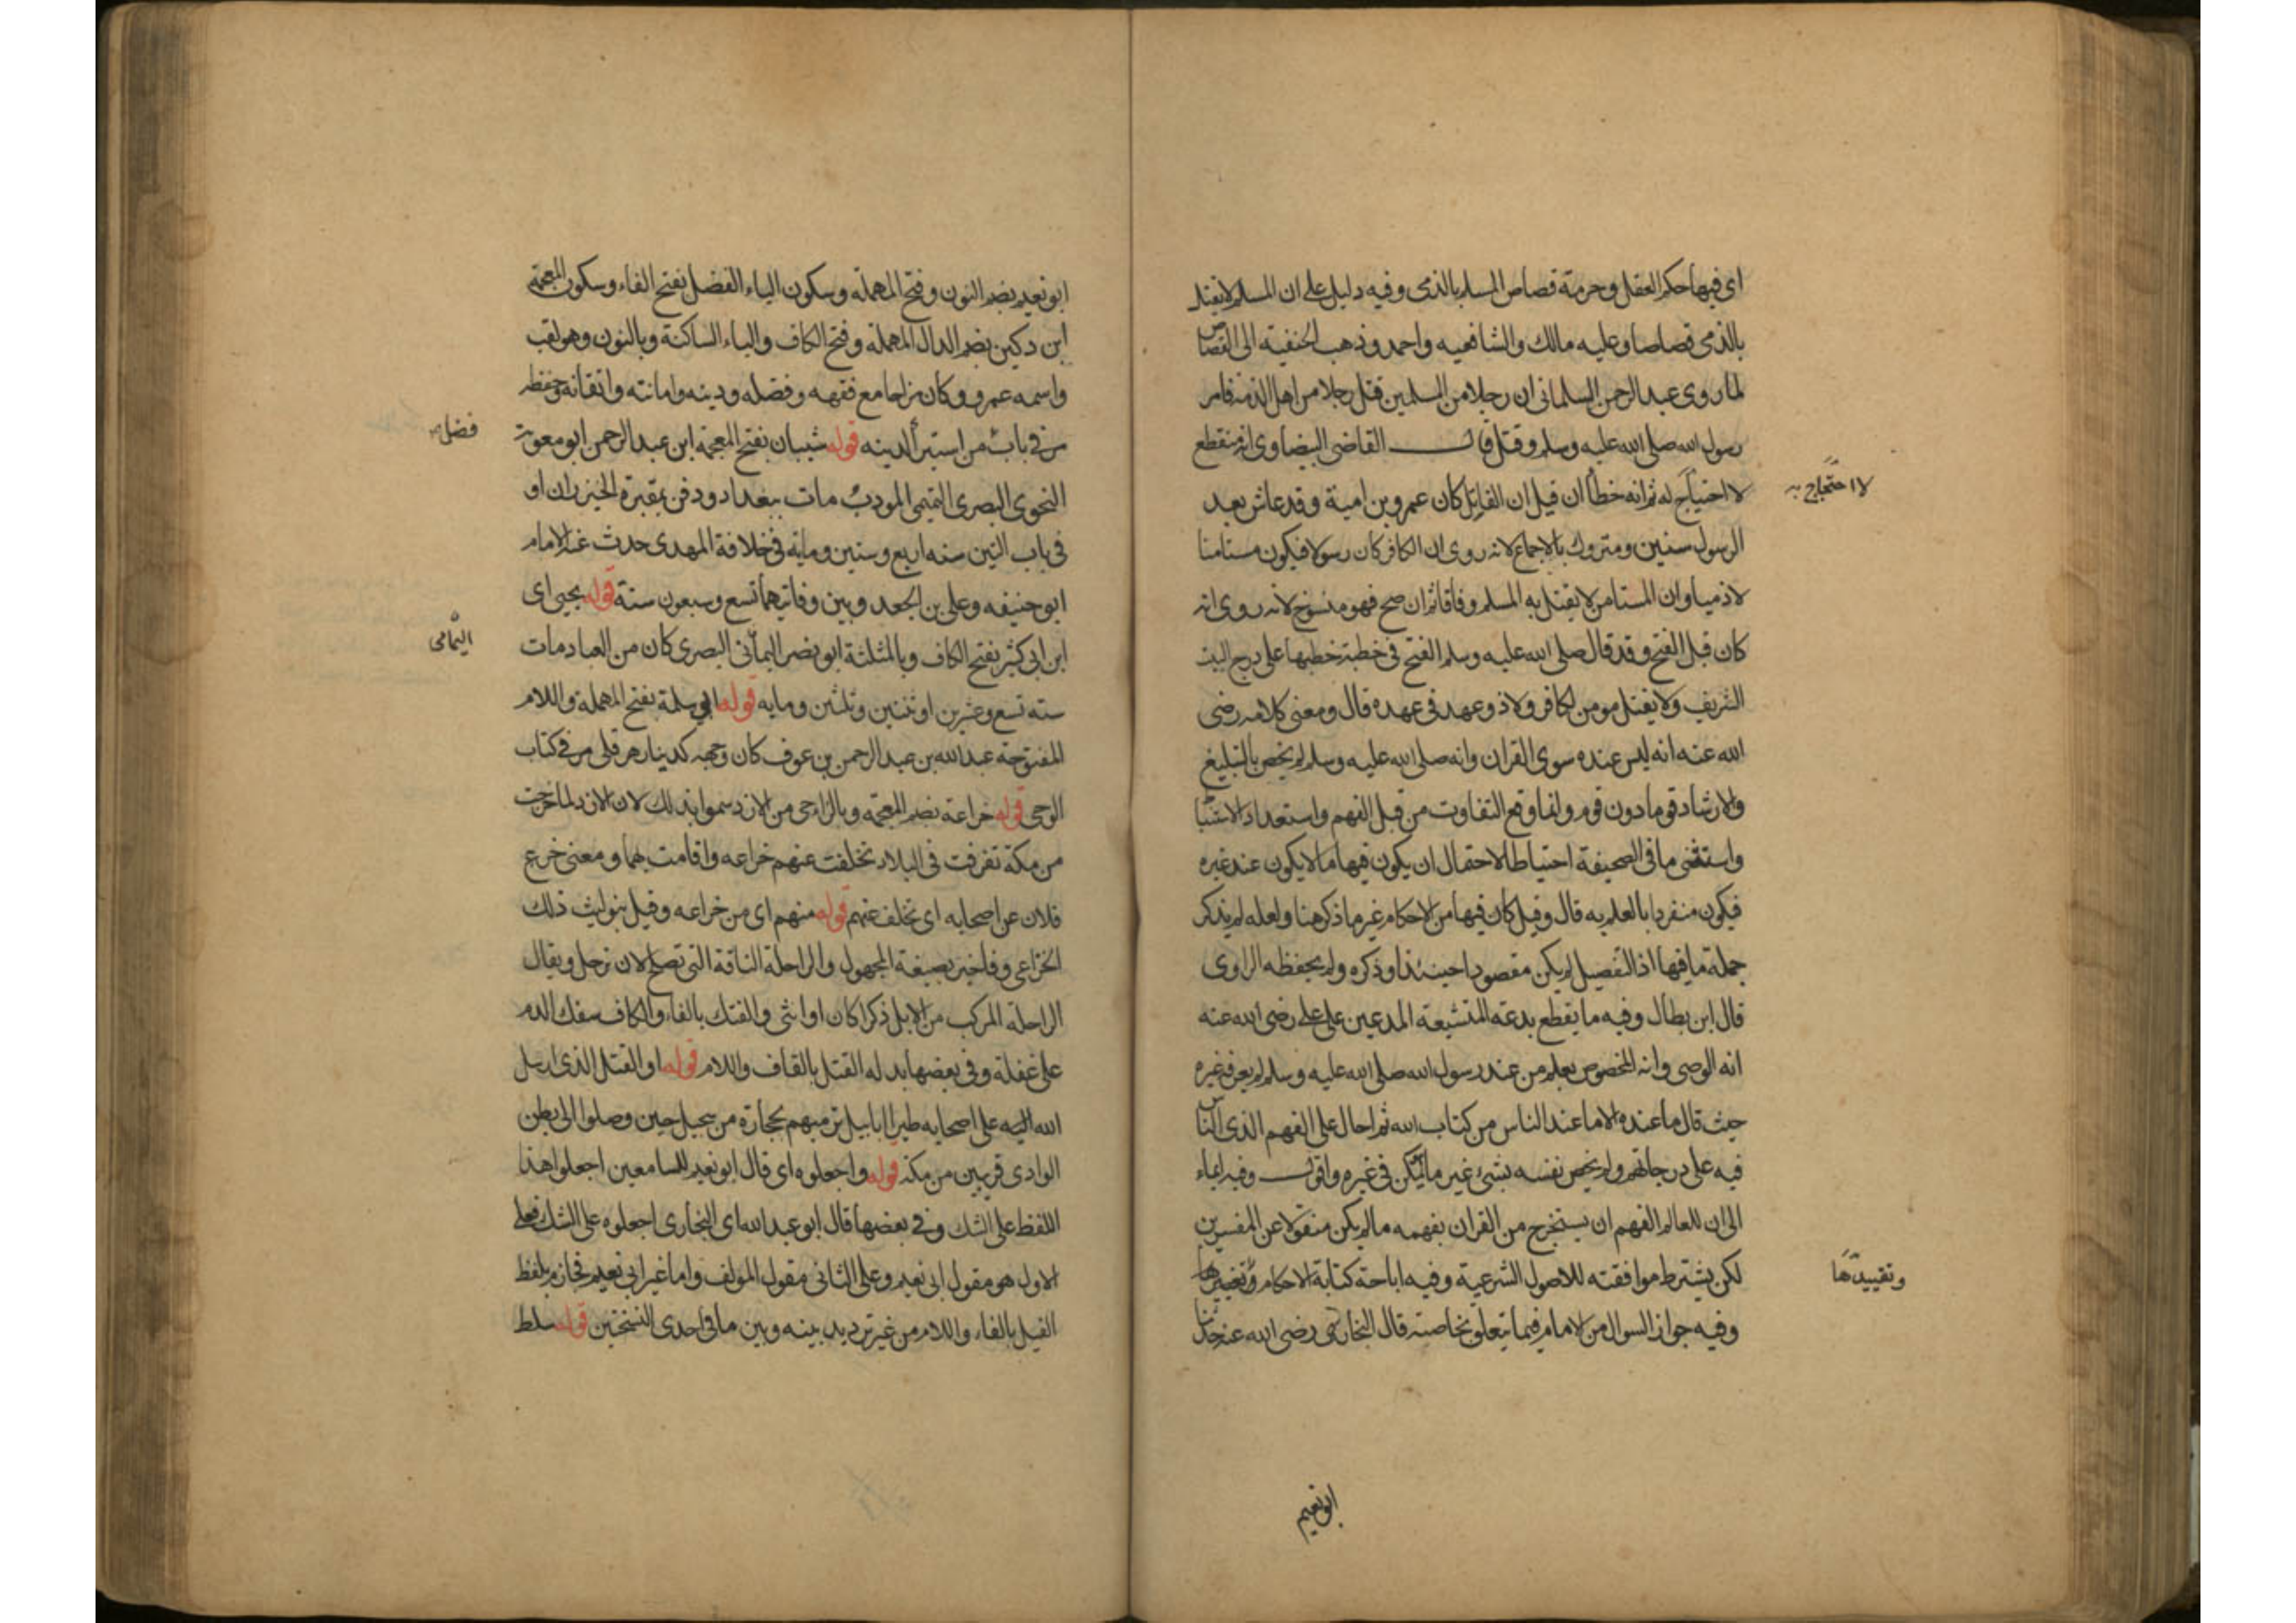 اى فيها حكم العقل وحرمة قصاص المسلم بالذمى وفيه دليل على ان المسلم لا يقتل
بالذمى قصاصا وعليه مالك والشافعيه واحمد وذهب الحنفية الى القصاص
لما روى عبد الرحمن السلمانى ان رجلا من المسلمين قتل رجلا من اهل الذمة فامر
رسول الله صلى الله عليه وسلم وقتل قال القاضى البيضاوى انه منقطع
لا احتياج له ثم انه خطأ ان قيل ان القاتل كان عمرو بن امية وقد عاش بعد
لا احتجاج به
الرسول سنين ومتروك بالاجماع لانه روى ان الكافر كان رسولا فيكون مستامنا
لا ذميا وان المستامن لا يقتل به المسلم وفاقا ثم ان صح فهو منسوخ لانه روى انه
كان قبل الفتح وقد قال صلى الله عليه وسلم الفتح فى خطبة خطبها على درج البيت
الشريف ولا يقتل مومن بكافر ولا ذو عهد فى عهده قال ومعنى كلامه رضى
الله عنه انه ليس عنده سوى القران وانه صلى الله عليه وسلم لم يخص بالتبليغ
والارشاد قوما دون قوم وانما وقع التفاوت من قبل الفهم واستعداد الاستنبا
واستثنى ما فى الصحيفة احتياطا لاحتمال ان يكون فيها ما لا يكون عند غيره
فيكون منفردا بالعلم به قال وقيل كان فيها من الاحكام غير ما ذكر هنا ولعله لم يذكر
جملة ما فيها اذ التفصيل لم يكن مقصودا حينئذ او ذكره ولم يحفظه الراوى
قال ابن بطال وفيه ما يقطع بدعة المتشيعة المدعين على على رضى الله عنه
انه الوصى وانه المخصوص بعلم من عند رسول الله صلى الله عليه وسلم لم يعرفه غيره
حيث قال ما عنده الا ما عند الناس من كتاب الله ثم احال على الفهم الذى الناس
فيه على درجاتهم ولم يخص نفسه بشئ غير ما يمكن فى غيره واقول وفيه ايماء
الى ان للعالم الفهم ان يستخرج من القران بفهمه ما لم يكن منقولا عن المفسرين
لكن يشترط موافقته للاصول الشرعية وفيه اباحة كتابة الاحكام
وتقييدها
وفيه جواز السوال من الامام فيما يتعلق بخاصته قال البخارى رضى الله عنه حدثنا
ابو نعيم
ابو نعيم بضم النون وفتح المهملة وسكون الياء الفضل بفتح الفاء وسكون المعجمة
ابن دكين بضم الدال المهملة وفتح الكاف والياء الساكنة وبالنون وهو لقب
واسمه عمرو وكان مزاحا مع فقهه وفضله ودينه وامانته واتقانه وحفظه
مر فى باب من استبرأ لدينه قوله شيبان بفتح المعجمة ابن عبد الرحمن ابو معوية
فضل
النحوى البصرى التميمى المودب مات ببغداد ودفن بمقبرة الخيزران او
فى باب التين سنه اربع وستين ومايه فى خلافة المهدى حدث عنه الامام
ابو حنيفه وعلى بن الجعد وبين وفاتيهما تسع وسبعون سنة قوله يحيى اى
ابن ابى كثير بفتح الكاف وبالمثلثة ابو نصر اليمانى البصرى كان من العباد مات
اليمامى
سنه تسع وعشرين او ثنتين وثلثين ومايه قوله ابى سلمة بفتح المهملة واللام
المفتوحة عبد الله بن عبد الرحمن بن عوف كان وجهه كدينار هرقلى مر فى كتاب
الوحى قوله خزاعة بضم المعجمة وبالزاحى من الازد سموا بذلك لان الازد لما خرجت
من مكة تفرقت فى البلاد تخلفت عنهم خزاعه واقامت بها ومعنى خزع
فلان عن اصحابه اى تخلف عنهم قوله منهم اى من خزاعه وقيل بنو ليث ذلك
الخزاعى وفاخبر بصيغة المجهول والراحلة الناقة التى تصلح لان ترحل ويقال
الراحلة المركب من الابل ذكرا كان او انثى والفتك بالفاء والكاف سفك الدم
على غفلة وفى بعضها بدله القتل بالقاف واللام قوله او القتل الذى ارسل
الله اليه على اصحابه طيرا ابابيل ترميهم بحجارة من سجيل حين وصلوا الى بطن
الوادى قريبين من مكة قوله واجعلوه اى قال ابو نعيم للسامعين اجعلوا هذا
اللفظ على الشك وفى بعضها قال ابو عبد الله اى البخارى اجعلوه على الشك فعلى
الاول هو مقول ابى نعيم وعلى الثانى مقول المولف واما غير ابى نعيم فجازم بلفظ
الفيل بالفاء واللام من غير ترديد بينه وبين ما فى احدى النسختين قوله سلط